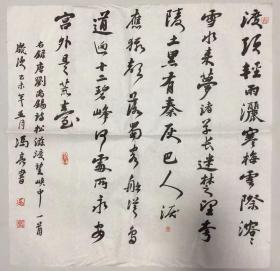 渡頭輕雨灑寒梅雲際溶〻
雪水來夢渚草長迷楚望夷
陵土黑有秦灰巴人淚
應猿聲落蜀客船從鳥
道迴十二碧峰何處所永安
宮外是荒臺
右錄唐劉禹錫詩松滋渡望峽中一首
歲次乙未年五月馮書